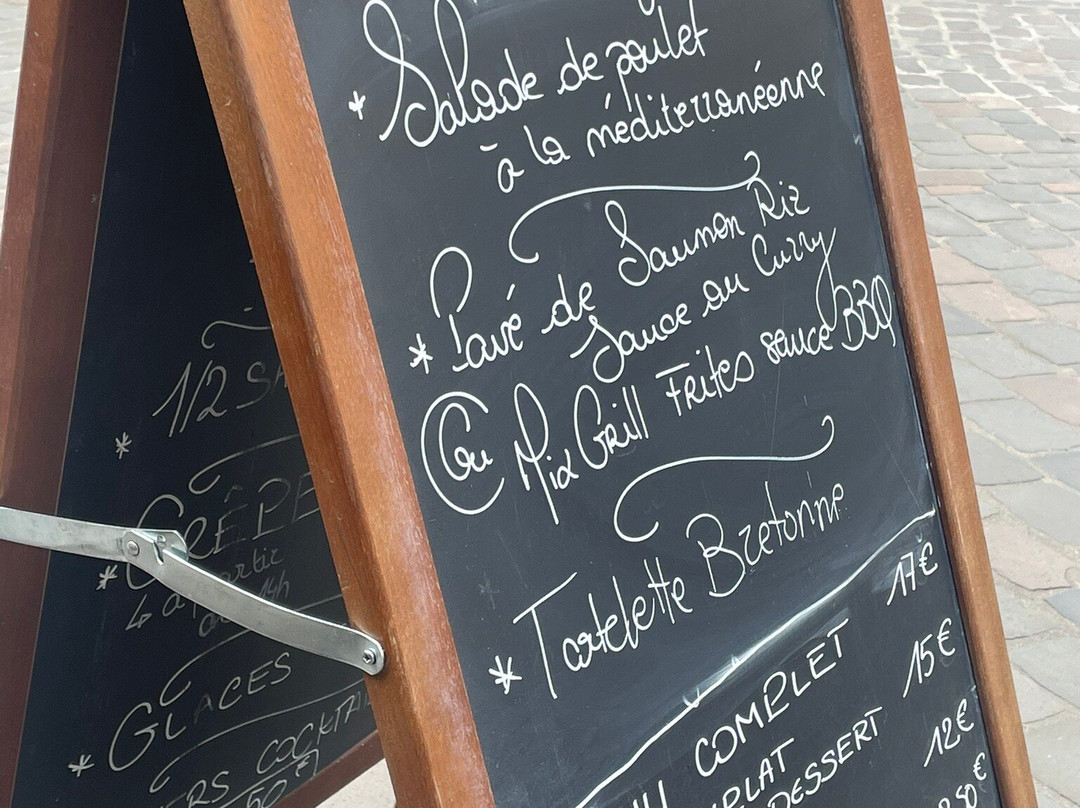 * Salade de poulet
à la méditerranéenne
* Pavé de Saumon Riz
Sauce au Curry
Ou Mix Grill Frites sauce BBQ
* Tartelette Bretonne
COMPLET 17€
PLAT 15€
DESSERT 12€
€
* 1/2 SA
* CRÊPE
à partir
de 14h
* GLACES
COCKTA